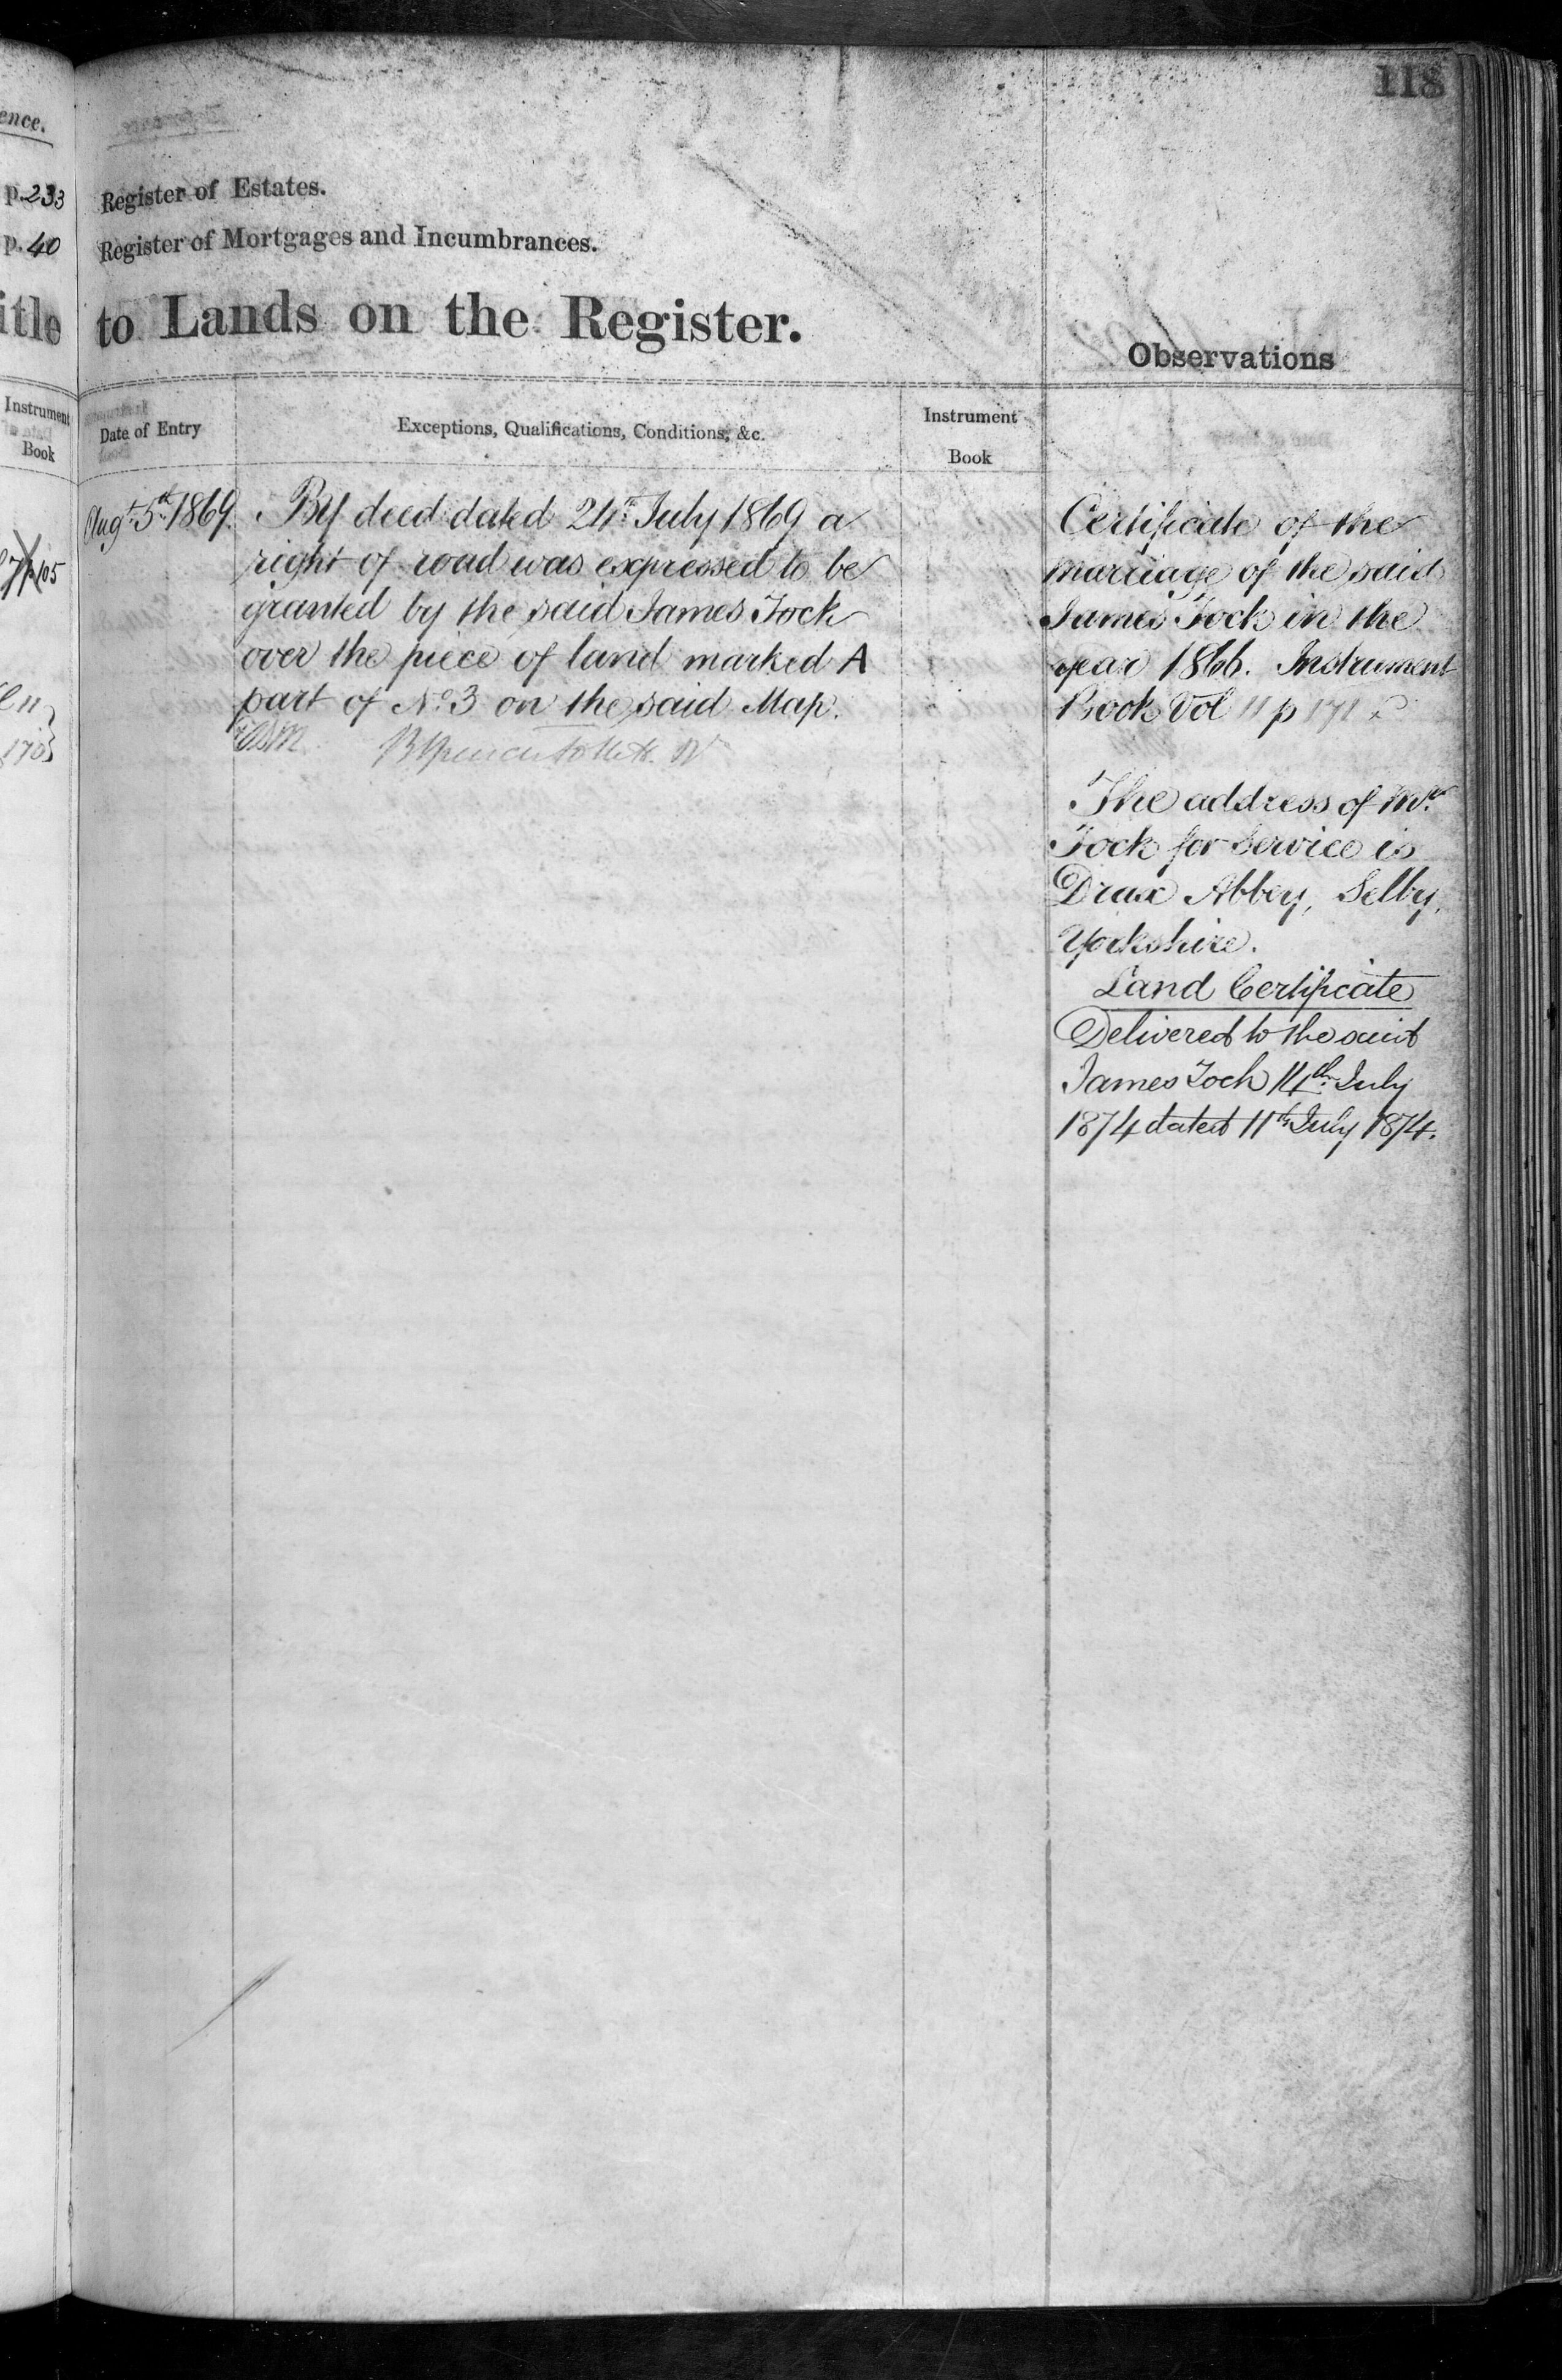 118
ence.
p. 233
p. 40
itle
Instrument
Book
105
Register of Estates.
Register of Mortgages and Incumbrances.
to Lands on the Register.
Observations
Date of Entry
Exceptions, Qualifications, Conditions, &c.
Instrument
Book
Augt. 5th 1869.
By deed dated 24th July 1869 a
right of road was expressed to be
granted by the said James Tock
over the piece of land marked A
part of No. 3 on the said Map.
Certificate of the
marriage of the said
James Tock in the
year 1866. Instrument
Book Vol 11 p 171
The address of Mr.
Tock for service is
Drax Abbey, Selby,
Yorkshire.
Land Certificate
Delivered to the said
James Tock 14th July
1874 dated 11th July 1874.